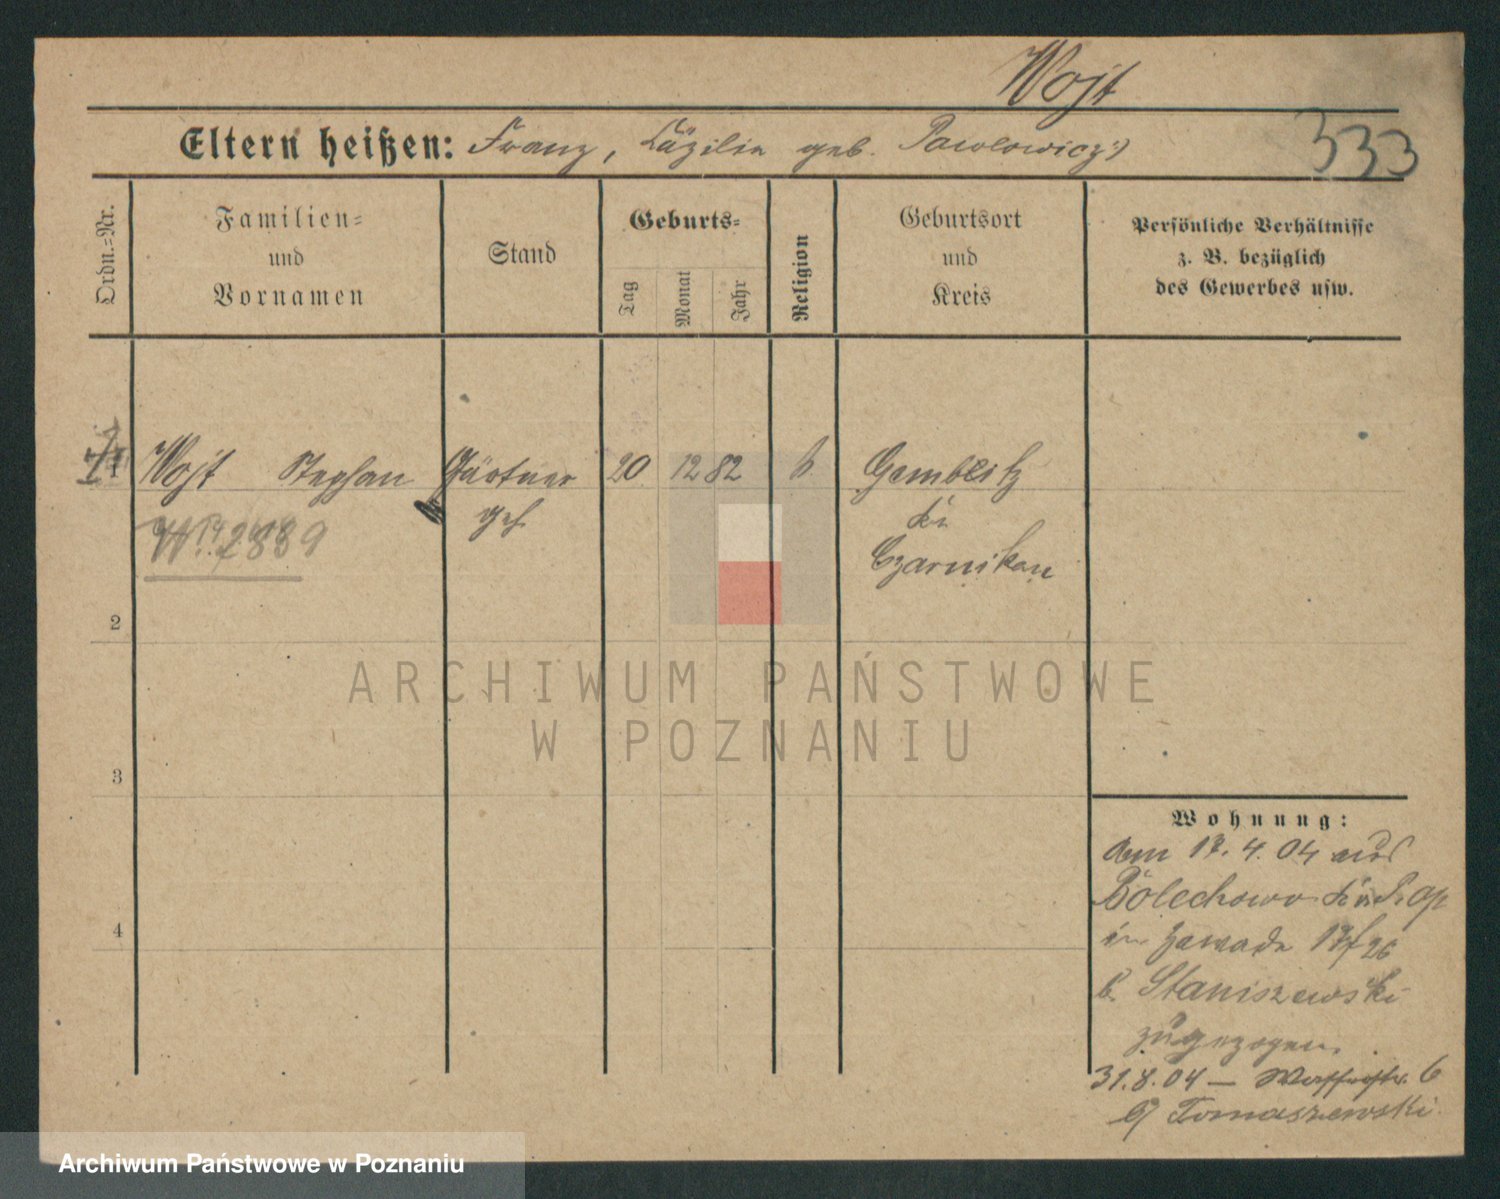 Wojt
Eltern heißen: Franz, Cäzilia geb. Pawlowicz
333
Ordn.=Nr.
Familien=
und
Vornamen
Stand
Geburts=
Tag
Monat
Jahr
Religion
Geburtsort
und
Kreis
Persönliche Verhältnisse
z. B. bezüglich
des Gewerbes usw.
1 Wojt Stephan Gärtner 20 12 82 k Gembitz
geh. Kr.
2889 Czarnikau
2
3
4
Wohnung:
am 17.4.04 aus
Bolechowo
in Zawade 17/26
b. Staniszewski
zugezogen.
31.8.04 — 6
b/ Tomaszewski.
ARCHIWUM PAŃSTWOWE
W POZNANIU
Archiwum Państwowe w Poznaniu